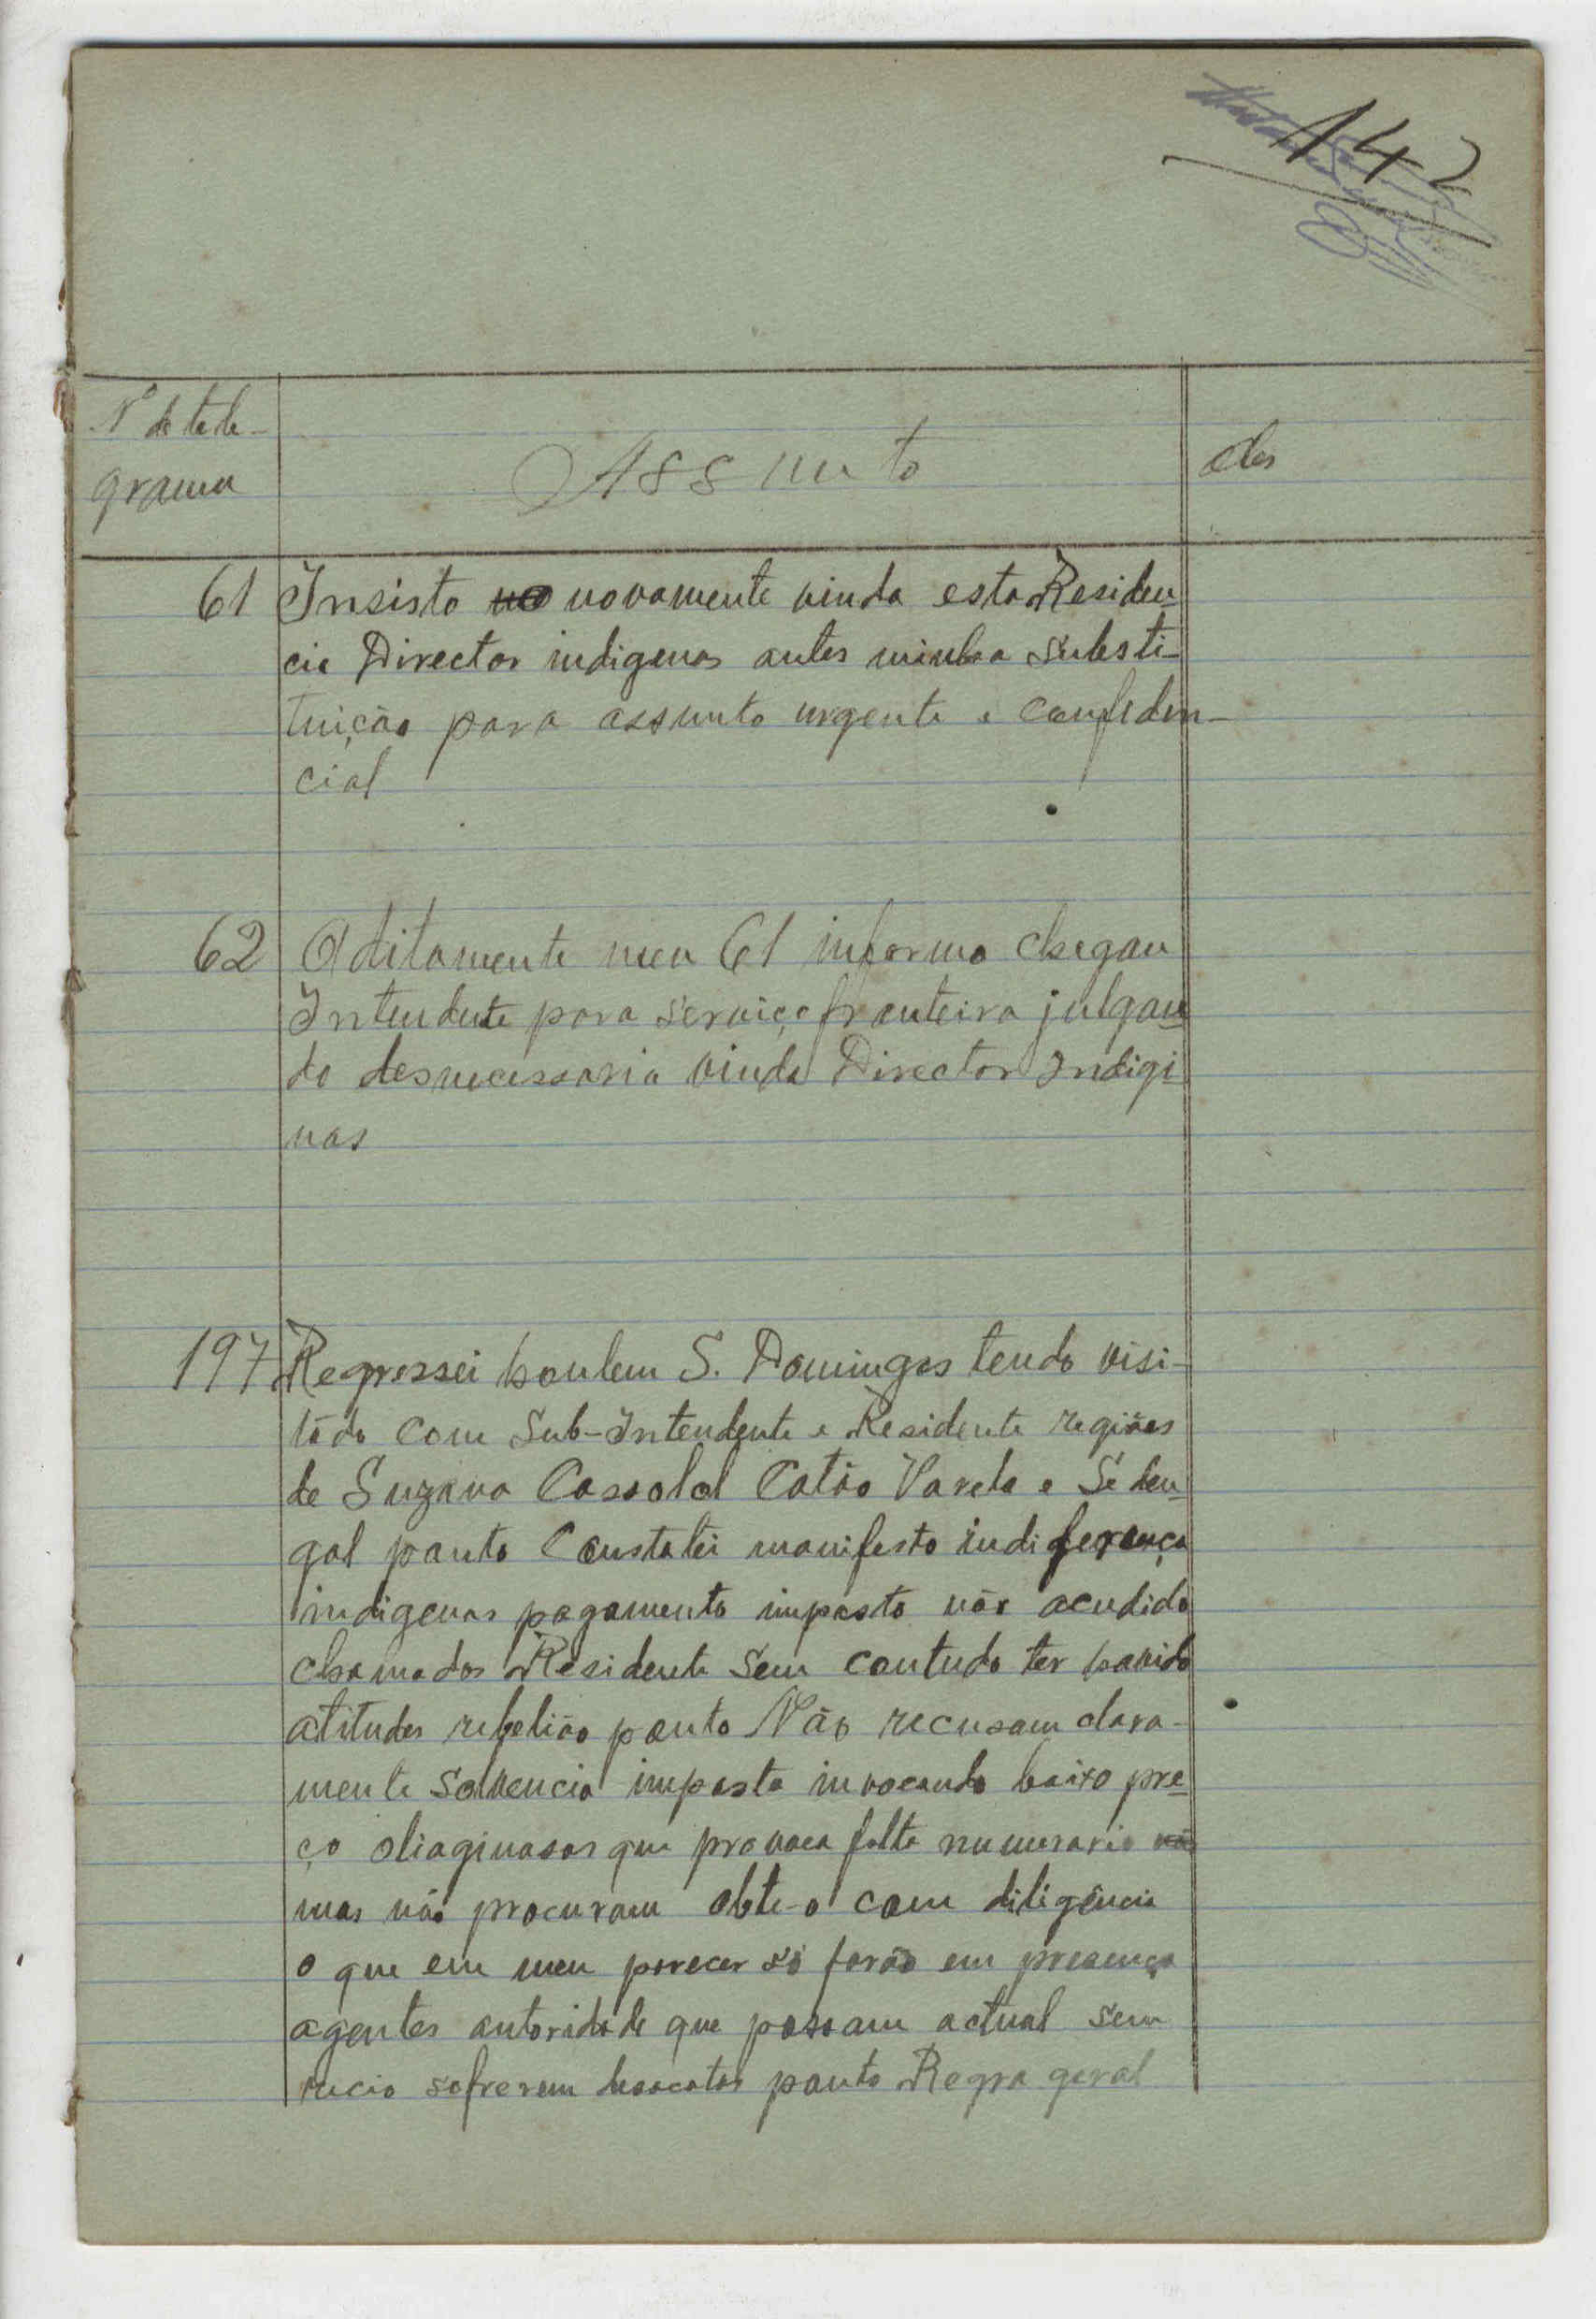 142
Nº de tele-
grama
Assunto
Obs
61 Insisto no novamente vinda esta Residen-
cia Director indigenas antes minha substi-
tuição para assunto urgente e confiden-
cial
62 Aditamente meu 61 informo chegau
Intendente para serviço fronteira julgan-
do desnecessaria vinda Director Indigi
nas
197 Regressei hontem S. Domingos tendo visi-
tado com Sub-Intendente e Residente regiões
de Suzana Cassolol Catão Varela e Seden-
gal ponto Constatei manifesta indiferença
indigenas pagamento imposto não acudido
chamados Residente sem contudo ter havido
atitudes rebelião ponto Não recusam clara-
mente solvencia imposto invocando baixo pre-
ço oliaginosas que provoca falta numerario não
mas não procuram obte-o com diligência
o que em meu parecer só farão em presença
agentes autoridade que possam actual sem
receio sofrerem desacatos ponto Regra geral